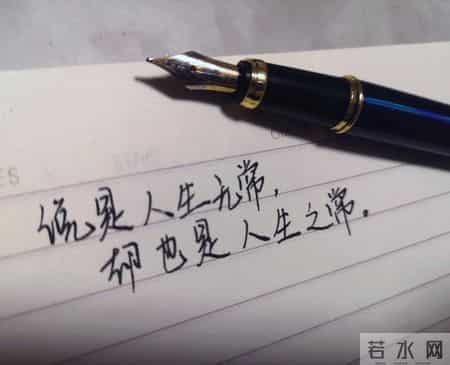 ES
说是人生无常，
却也是人生之常。
若水网